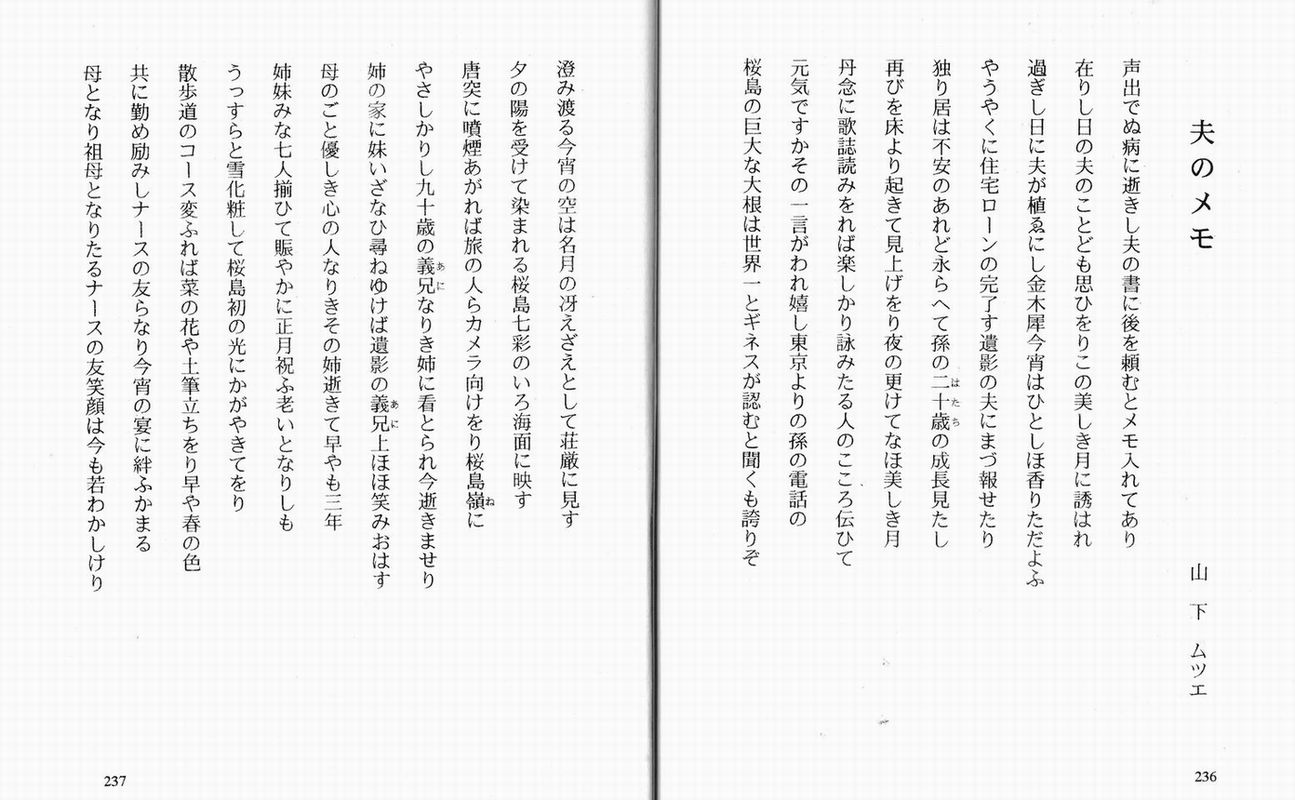 夫のメモ
山下ムツエ
声出でぬ病に逝きし夫の書に後を頼むとメモ入れてあり
在りし日の夫のことども思ひをりこの美しき月に誘はれ
過ぎし日に夫が植ゑにし金木犀今宵はひとしほ香りただよふ
やうやくに住宅ローンの完了す遺影の夫にまづ報せたり
独り居は不安のあれど永らへて孫の二十歳の成長見たし
はたち
再びを床より起きて見上げをり夜の更けてなほ美しき月
丹念に歌誌読みをれば楽しかり詠みたる人のこころ伝ひて
元気ですかその一言がわれ嬉し東京よりの孫の電話の
桜島の巨大な大根は世界一とギネスが認むと聞くも誇りぞ
236
澄み渡る今宵の空は名月の冴えざえとして荘厳に見す
夕の陽を受けて染まれる桜島七彩のいろ海面に映す
唐突に噴煙あがれば旅の人らカメラ向けをり桜島嶺に
ね
やさしかりし九十歳の義兄なりき姉に看とられ今逝きませり
あに
姉の家に妹いざなひ尋ねゆけば遺影の義兄上ほほ笑みおはす
あに
母のごと優しき心の人なりきその姉逝きて早やも三年
姉妹みな七人揃ひて賑やかに正月祝ふ老いとなりしも
うっすらと雪化粧して桜島初の光にかがやきてをり
散歩道のコース変ふれば菜の花や土筆立ちをり早や春の色
共に勤め励みしナースの友らなり今宵の宴に絆ふかまる
母となり祖母となりたるナースの友笑顔は今も若わかしけり
237